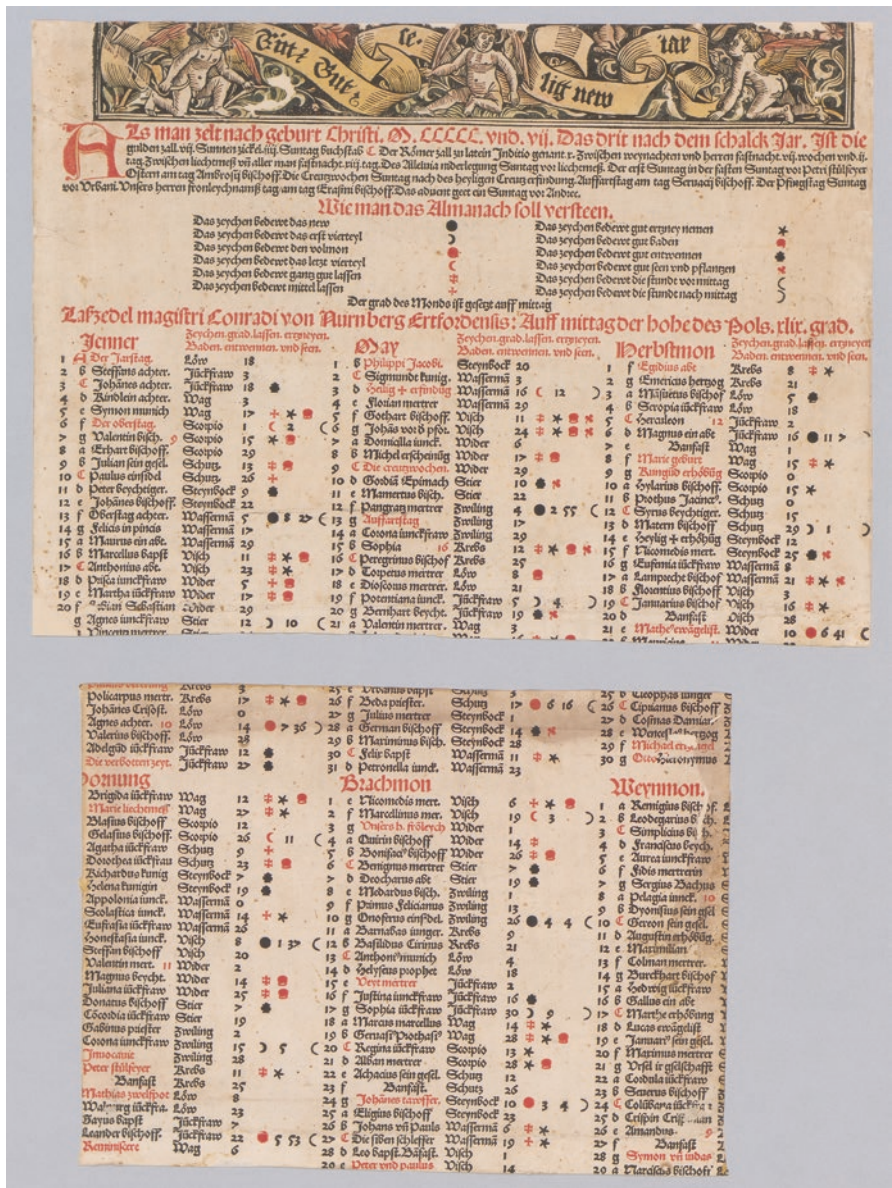 Gut: Gut: se- lig new iar
ALs man zelt nach geburt Christi. M. CCCCC. vnd. vij. Das drit nach dem schalck Jar. Ist die
gulden zall. vij. Sunnen zickel. iiij. Suntag buchstab C Der Römer zall zu latein Inditio genant. x. Zwischen weynachten vnd herren fastnacht. vij. wochen vnd. ij.
tag. Zwischen liechtmeß vñ aller man fastnacht. xiij. tag. Des Alleluia nderlegung Suntag vor liechtmeß. Der erst Suntag in der fasten Suntag vor Petri stülfeyer
Ostern am tag Ambrosij bischoff. Die Creutzwochen Suntag nach des heyligen Creutz erfindung. Auffartstag am tag Seruacij bischoff. Der Pfingstag Suntag
vor Vrbani. Vnsers herren fronleychnamß tag am tag Erasmi bischoff. Das aduent geet ein Suntag vor Andree.
Wie man das Almanach soll versteen.
Das zeychen bedewt das new
Das zeychen bedewt das erst vierteyl
Das zeychen bedewt den volmon
Das zeychen bedewt das letzt vierteyl
Das zeychen bedewt gantz gut lassen
Das zeychen bedewt mittel lassen
Das zeychen bedewt gut ertzney nemen
Das zeychen bedewt gut baden
Das zeychen bedewt gut entwennen
Das zeychen bedewt gut seen vnd pflantzen
Das zeychen bedewt die stunde vor mittag
Das zeychen bedewt die stunde nach mittag
Der grad des Monds ist gesetzt auff mittag
Laßzedel magistri Conradi von Nurnberg Ertfordensis: Auff mittag der hohe des Pols. xlix. grad.
Jenner
Zeychen. grad. lassen. ertzneyen.
Baden. entwennen. vnd seen.
1 A Der Jarstag. Löw 18
2 b Steffans achter. Jückfraw 3
3 c Johänes achter. Jückfraw 18
4 d Kindlein achter. Wag 3
5 e Symon munich Wag 17 +
6 f Der oberstag. Scorpio 1 2
7 g Valentin bisch. 9 Scorpio 15
8 a Erhart bischoff. Scorpio 29
9 b Julian sein gesel. Schutz 13
10 C Paulus einsidel Schutz 26 +
11 d Peter beychtiger. Steynbock 9
12 e Johänes bischoff. Steynbock 22
13 f Oberstag achter. Wassermä 5 8 27
14 g Felicis in pincis Wassermä 17
15 a Maurus ein abt. Wassermä 29
16 b Marcellus bapst Visch 11
17 C Anthonius abt. Visch 23
18 d Prisca iunckfraw Wider 5 +
19 e Martha iückfraw Wider 17
20 f Sebastian Wider 29
g Agnes iunckfraw Stier 12 10
May
Zeychen. grad. lassen. ertzneyen.
Baden. entwennen. vnd seen.
1 b Philippi Jacobi. Steynbock 20
2 C Sigmundt kunig. Wassermä 3
3 d Heilig + erfindūg Wassermä 16 12
4 e Florian mertrer Wassermä 29
5 f Gothart bischoff. Visch 11
6 g Johäs vor d pfor. Visch 24
7 a Domicella iunck. Wider 6
8 b Michel erscheinūg Wider 17
9 C Die creutzwochen. Wider 29
10 d Gordiä Epimach Stier 10
11 e Mamertus bisch. Stier 22
12 f Pangratz mertrer Zwiling 4 2 55
13 g Auffartstag Zwiling 17
14 a Corona iunckfraw Zwiling 29
15 b Sophia 16 Krebs 12
16 C Peregrinus bischof Krebs 25
17 d Torpetus mertrer Löw 8
18 e Dioscorus mertrer. Löw 21
19 f Potentiana iunck. Jückfraw 5 4
20 g Bernhart beycht. Jückfraw 19
21 a Valentin mertrer. Wag 3
Herbstmon
Zeychen. grad. lassen. ertzneyen
Baden. entwennen. vnd seen.
1 f Egidius abt Krebs 8
2 g Emericus hertzog Krebs 21
3 a Mäsuetus bischof Löw 5
4 b Seropia iückfraw Löw 18
5 C Herculeon 12 Jückfraw 2
6 d Magnus ein abt Jückfraw 16 11 7
7 e Banfast Wag 1
8 f Marie geburt Wag 15
9 g Kungūd erhöbūg Scorpio 0
10 a Hylarius bischoff. Scorpio 15
11 b Prothus Jacincꝰ. Schutz 0
12 C Syrus beychtiger. Schutz 15
13 d Matern bischoff Schutz 29 1
14 e Heylig + erhöhūg Steynbock 12
15 f Nicomedis mert. Steynbock 25
16 g Eufemia iückfraw Wassermä 8
17 a Lamprecht bischof Wassermä 21
18 b Florentius bischoff Visch 3
19 C Januarius bischof Visch 16
20 d Banfast Visch 28
21 e Matheꝰ ewägelist. Wider 10 6 41
Policarpus mertr. Krebs 17
Johänes Crisost. Löw 0
Agnes achter. 10 Löw 14 7 36
Valerius bischoff. Löw 28
Adelgūd iückfraw Jückfraw 12
Die verbotten zeyt. Jückfraw 27
Hornung
Brigida iückfraw Wag 12
Marie liechtmeß Wag 27
Blasius bischoff Scorpio 12
Gelasius bischoff. Scorpio 26 11
Agatha iückfraw Schutz 9 +
Dorothea iückfrau Schutz 23
Richardus kunig Steynbock 7
Helena kunigin Steynbock 19
Appolonia iunck. Wassermä 0
Scolastica iunck. Wassermä 14 +
Eufrasia iückfraw Wassermä 26
Honestasia iunck. Visch 8 1 37
Steffan bischoff Visch 20
Valentin mert. 11 Wider 2
Magnus beycht. Wider 14
Juliana iückfraw Wider 25
Donatus bischoff Stier 7
Cöcordia iückfraw Stier 19
Gabinus priester Zwiling 2
Corona iunckfraw Zwiling 15 5
Inuocauit Zwiling 28
Peter stülfeyer Krebs 11
Banfast Krebs 25
Mathias zwelfpot Löw 8
Walpurg iückfra. Löw 23
Gayus bapst Jückfraw 7
Leander bischoff. Jückfraw 22 5 53
Reminiscere Wag 6
25 e Vrbanus bapst Schutz 3
26 f Beda priester. Schutz 17 6 16
27 g Julius mertrer Steynbock 1
28 a German bischoff Steynbock 14
29 b Maximinus bisch. Steynbock 28
30 C Felix bapst Wassermä 11
31 d Petronella iunck. Wassermä 23
Brachmon
1 e Nicomedis mert. Visch 6 +
2 f Marcellinus mer. Visch 19 3
3 g Vnsers h. fröleych Wider 1
4 a Quirin bischoff Wider 14
5 b Bonifacꝰ bischoff Wider 26
6 C Benignus mertrer Stier 7
7 d Deocharus abt Stier 19
8 e Medardus bisch. Zwiling 1
9 f Primus Felicianus Zwiling 13
10 g Onofrus einsidel Zwiling 26 4 4
11 a Barnabas iunger. Krebs 9
12 b Basilidus Cirinus Krebs 21
13 C Anthoniꝰ munich Löw 4
14 d Helyseus prophet Löw 18
15 e Veyt mertrer Jückfraw 2
16 f Justina iunckfraw Jückfraw 16
17 g Sophia iückfraw Jückfraw 30 9
18 a Marcus marcellus Wag 14
19 b Geruasiꝰ Prothasiꝰ Wag 28
20 C Regina iückfraw Scorpio 13
21 d Alban mertrer Scorpio 28
22 e Achacius sein gesel. Schutz 12
23 f Banfast. Schutz 26
24 g Johänes tawffer. Steynbock 10 3 4
25 a Eligius bischoff Steynbock 23
26 b Johans vñ Pauls Wassermä 6
27 C Die siben schleffer Wassermä 19 +
28 d Leo bapst. Bäfast. Visch 1
29 e Peter vnd paulus Visch 14
25 b Cleophas iunger
26 C Ciprianus bischoff
27 d Cosmas Damiar.
28 e Wenceslaꝰ hertzog
29 f Michael ertzengel
30 g Otto Hieronymus
Weynmon.
1 a Remigius bischof.
2 b Leodegarius bisch.
3 C Simplicius bisch.
4 d Franciscus beych.
5 e Aurea iunckfraw
6 f Fidis mertrerin
7 g Sergius Bachus
8 a Pelagia iunck. 10
9 b Dyonisius sein gesel
10 C Gereon sein gesel.
11 d Augustin erhöbūg.
12 e Maximilian
13 f Colman mertrer.
14 g Burckhart bischof
15 a Hedwig iückfraw
16 b Gallus ein abt
17 C Marthe erhöbung
18 d Lucas ewägelist
19 e Januariꝰ sein gesel.
20 f Maximus mertrer
21 g Vrsel ir gselschafft
22 a Cordula iückfraw
23 b Seuerus bischoff
24 C Colūbana iückfra
25 d Crispin Crispinian
26 e Amandus 9
27 f Banfast
28 g Symon vñ iudas
29 a Narcissus bischoff